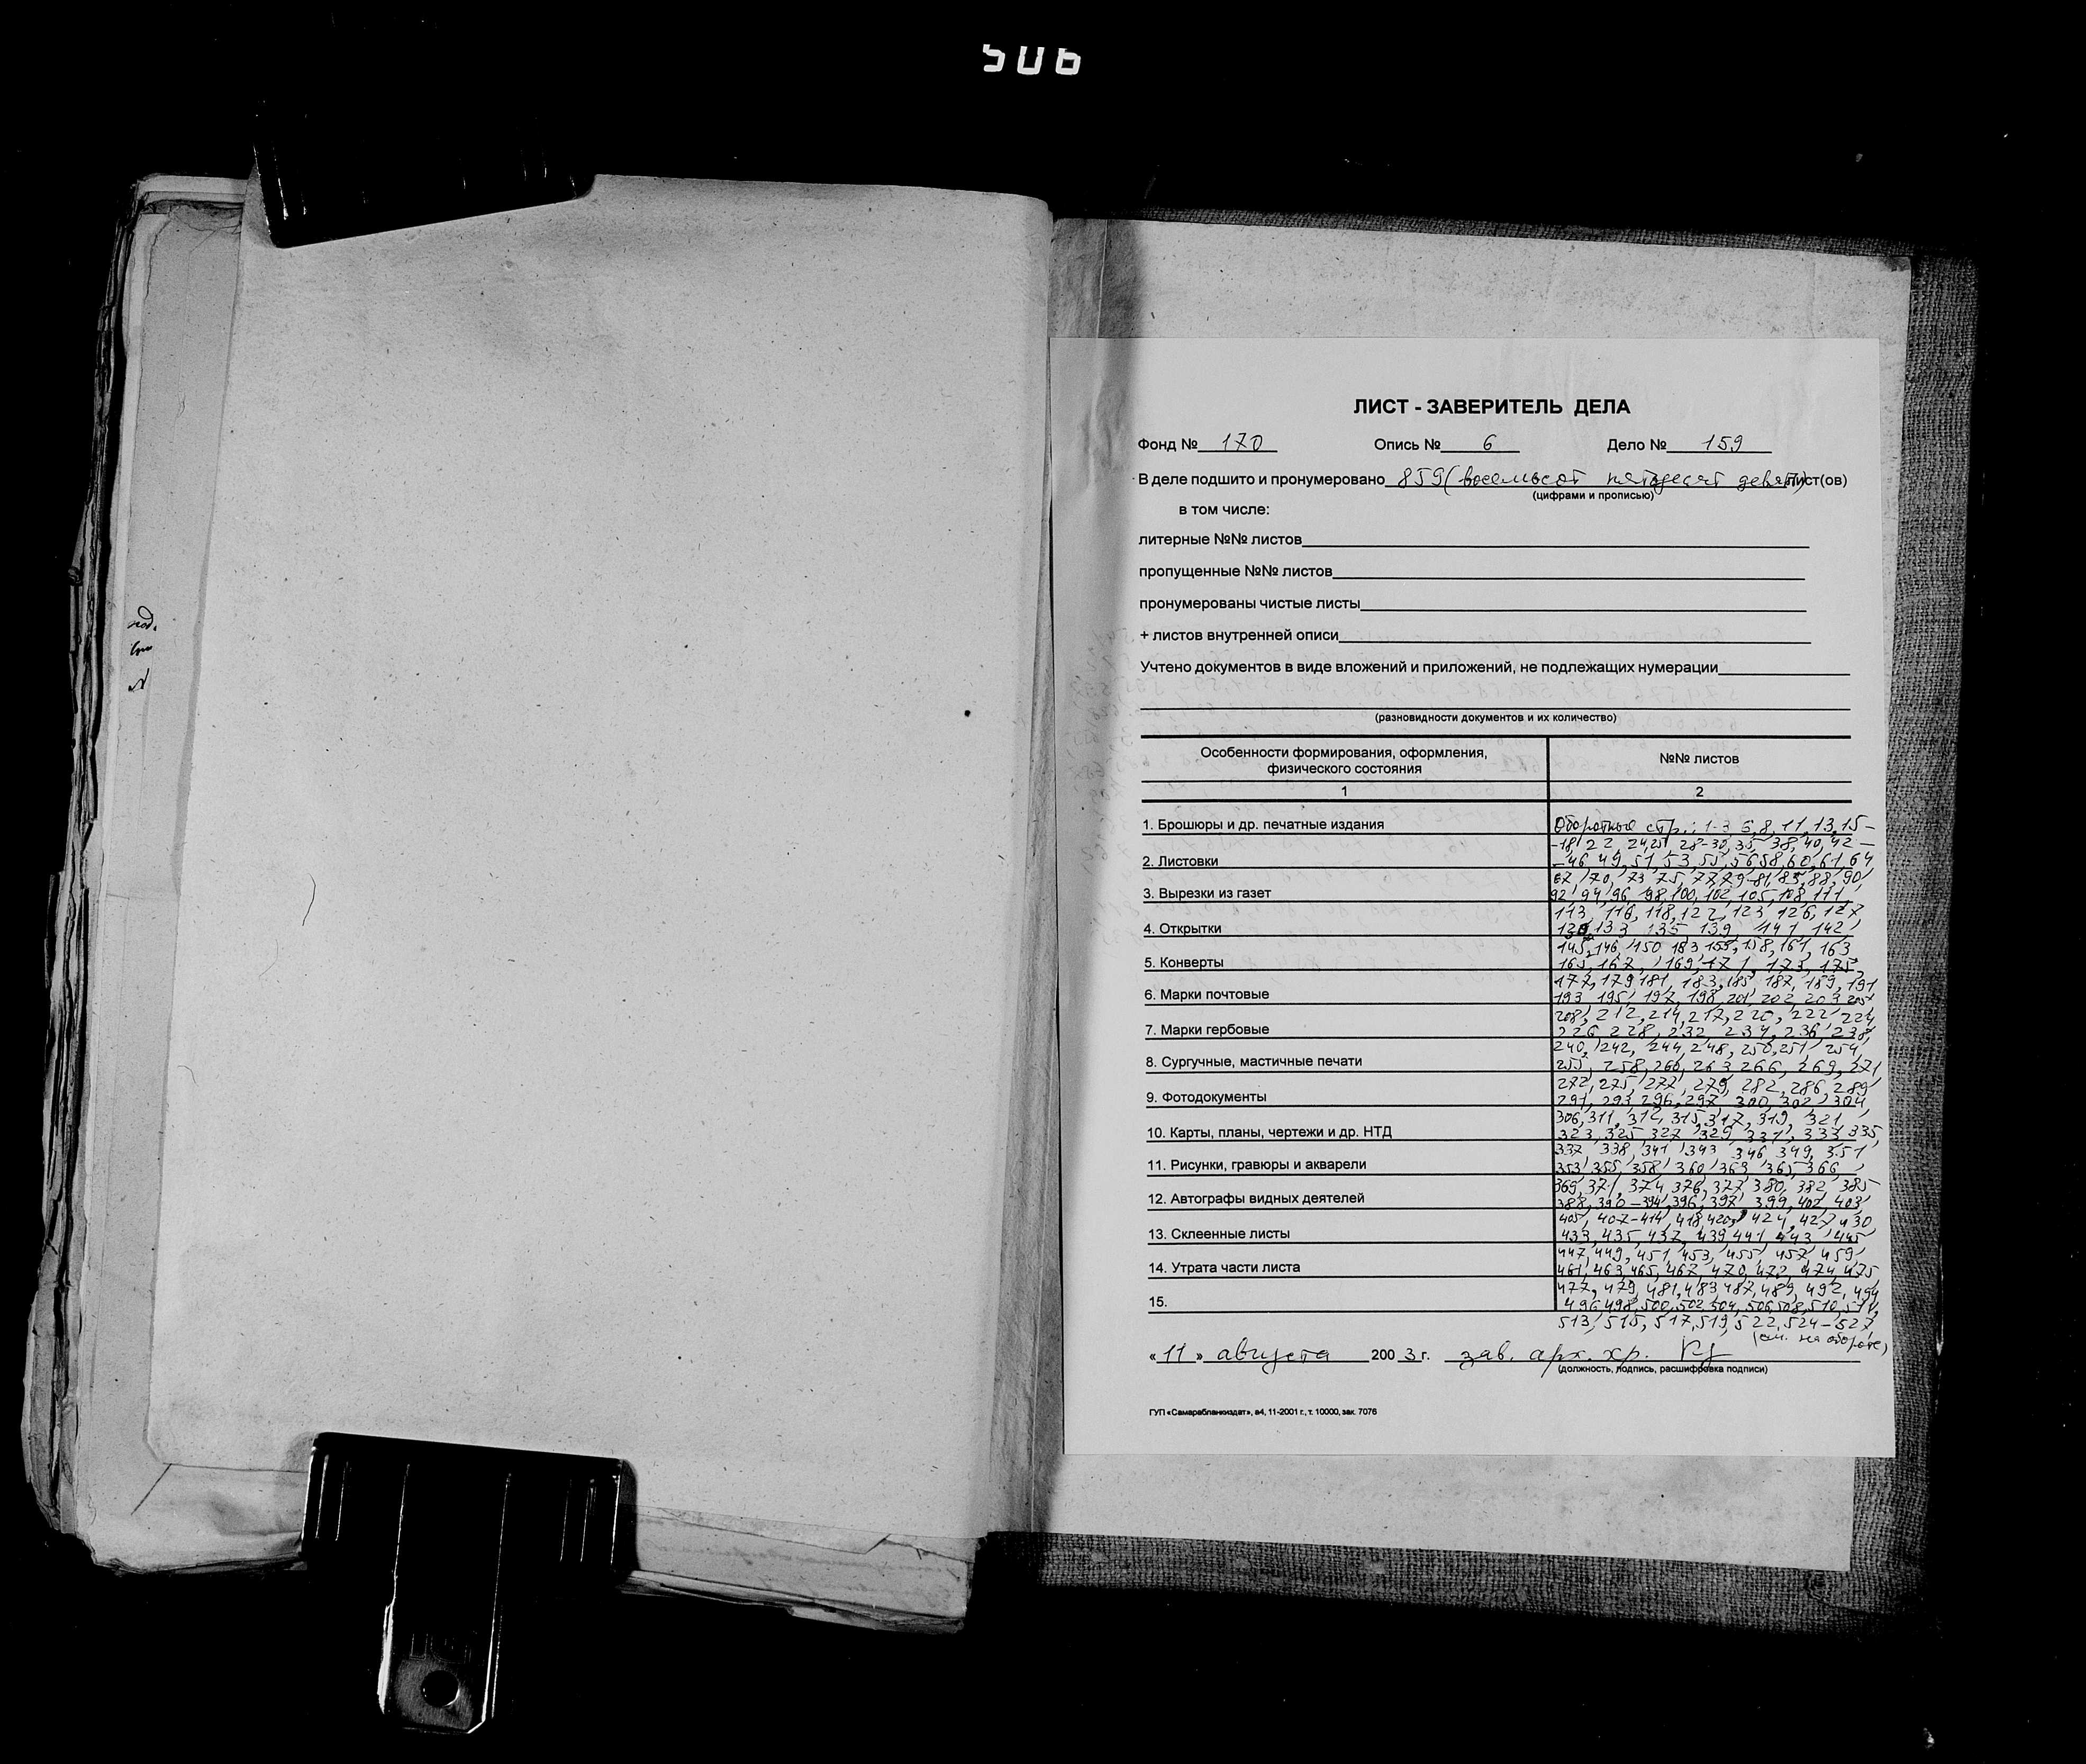 506
ЛИСТ - ЗАВЕРИТЕЛЬ ДЕЛА
Фонд № 170 Опись № 6 Дело № 159
В деле подшито и пронумеровано 859 (восемьсот пятьдесят девять) лист(ов)
(цифрами и прописью)
в том числе:
литерные №№ листов
пропущенные №№ листов
пронумерованы чистые листы
+ листов внутренней описи
Учтено документов в виде вложений и приложений, не подлежащих нумерации
(разновидности документов и их количество)
Особенности формирования, оформления,
физического состояния
№№ листов
1
2
1. Брошюры и др. печатные издания
2. Листовки
3. Вырезки из газет
4. Открытки
5. Конверты
6. Марки почтовые
7. Марки гербовые
8. Сургучные, мастичные печати
9. Фотодокументы
10. Карты, планы, чертежи и др. НТД
11. Рисунки, гравюры и акварели
12. Автографы видных деятелей
13. Склеенные листы
14. Утрата части листа
15.
Оборотные стр.: 1-3, 6, 8, 11, 13, 15-
-18, 22, 24, 25, 28-30, 35, 38, 40, 42-
-46, 49, 51, 53, 55, 56, 58, 60, 61, 64
67, 70, 73, 75, 77, 79-81, 83, 88, 90,
92, 94, 96, 98, 100, 102, 105, 108, 111,
113, 116, 118, 122, 123, 126, 127
133, 135, 139, 141, 142,
145, 146, 150, 153, 155, 158, 161, 163
165, 167, 169, 171, 173, 175,
177, 179, 181, 183, 185, 187, 189, 191
193, 195, 197, 198, 201, 202, 203, 205
208, 212, 214, 217, 220, 222, 224
226, 228, 232, 234, 236, 238,
240, 242, 244, 248, 250, 251, 254,
255, 258, 260, 263, 266, 269, 271
272, 275, 277, 279, 282, 286, 289
291, 293, 296, 297, 300, 302, 304
306, 311, 312, 315, 317, 319, 321,
323, 325, 327, 329, 331, 333, 335,
337, 338, 341, 343, 346, 349, 351
353, 355, 358, 360, 363, 365, 366,
369, 371, 374, 376, 377, 380, 382, 385
388, 390-394, 396, 397, 399, 402, 403,
405, 407-414, 418, 420, 424, 427, 430,
433, 435, 437, 439, 441, 443, 445
447, 449, 451, 453, 455, 457, 459
461, 463, 465, 467, 470, 472, 474, 475
477, 479, 481, 483, 487, 489, 492, 494
496, 498, 500, 502, 504, 506, 508, 510, 511,
513, 515, 517, 519, 522, 524-527,
(см. на обороте)
«11» августа 2003 г. зав. арх. хр.
(должность, подпись, расшифровка подписи)
ГУП «Самарабланкиздат», а4, 11-2001 г., т. 10000, зак. 7076